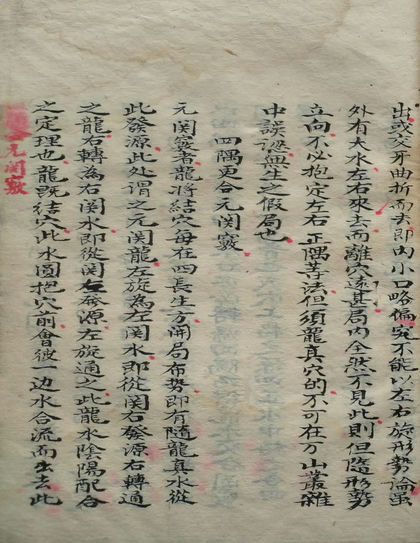 出或交牙曲折而去即由小口略偏究不能以左右旋形勢論虽
外有大水左右來去而離穴遠甚局内全然不見此則但隨形勢
立向不必抱定左右正隅等法但須龍真穴的不可在万山叢雜
中誤認無生之假局也
四隅更合元関竅
元関竅者龍將結穴每在四長生方開局布勢即有隨龍真水從
此發源此处謂之元関龍左旋為左関水即從関右發源右轉通
之龍右轉為右関水即從関右發源左旋通之此龍水陰陽配合
之定理也龍既結穴此水圓抱穴前會彼一边水合流而出去此
合元関竅